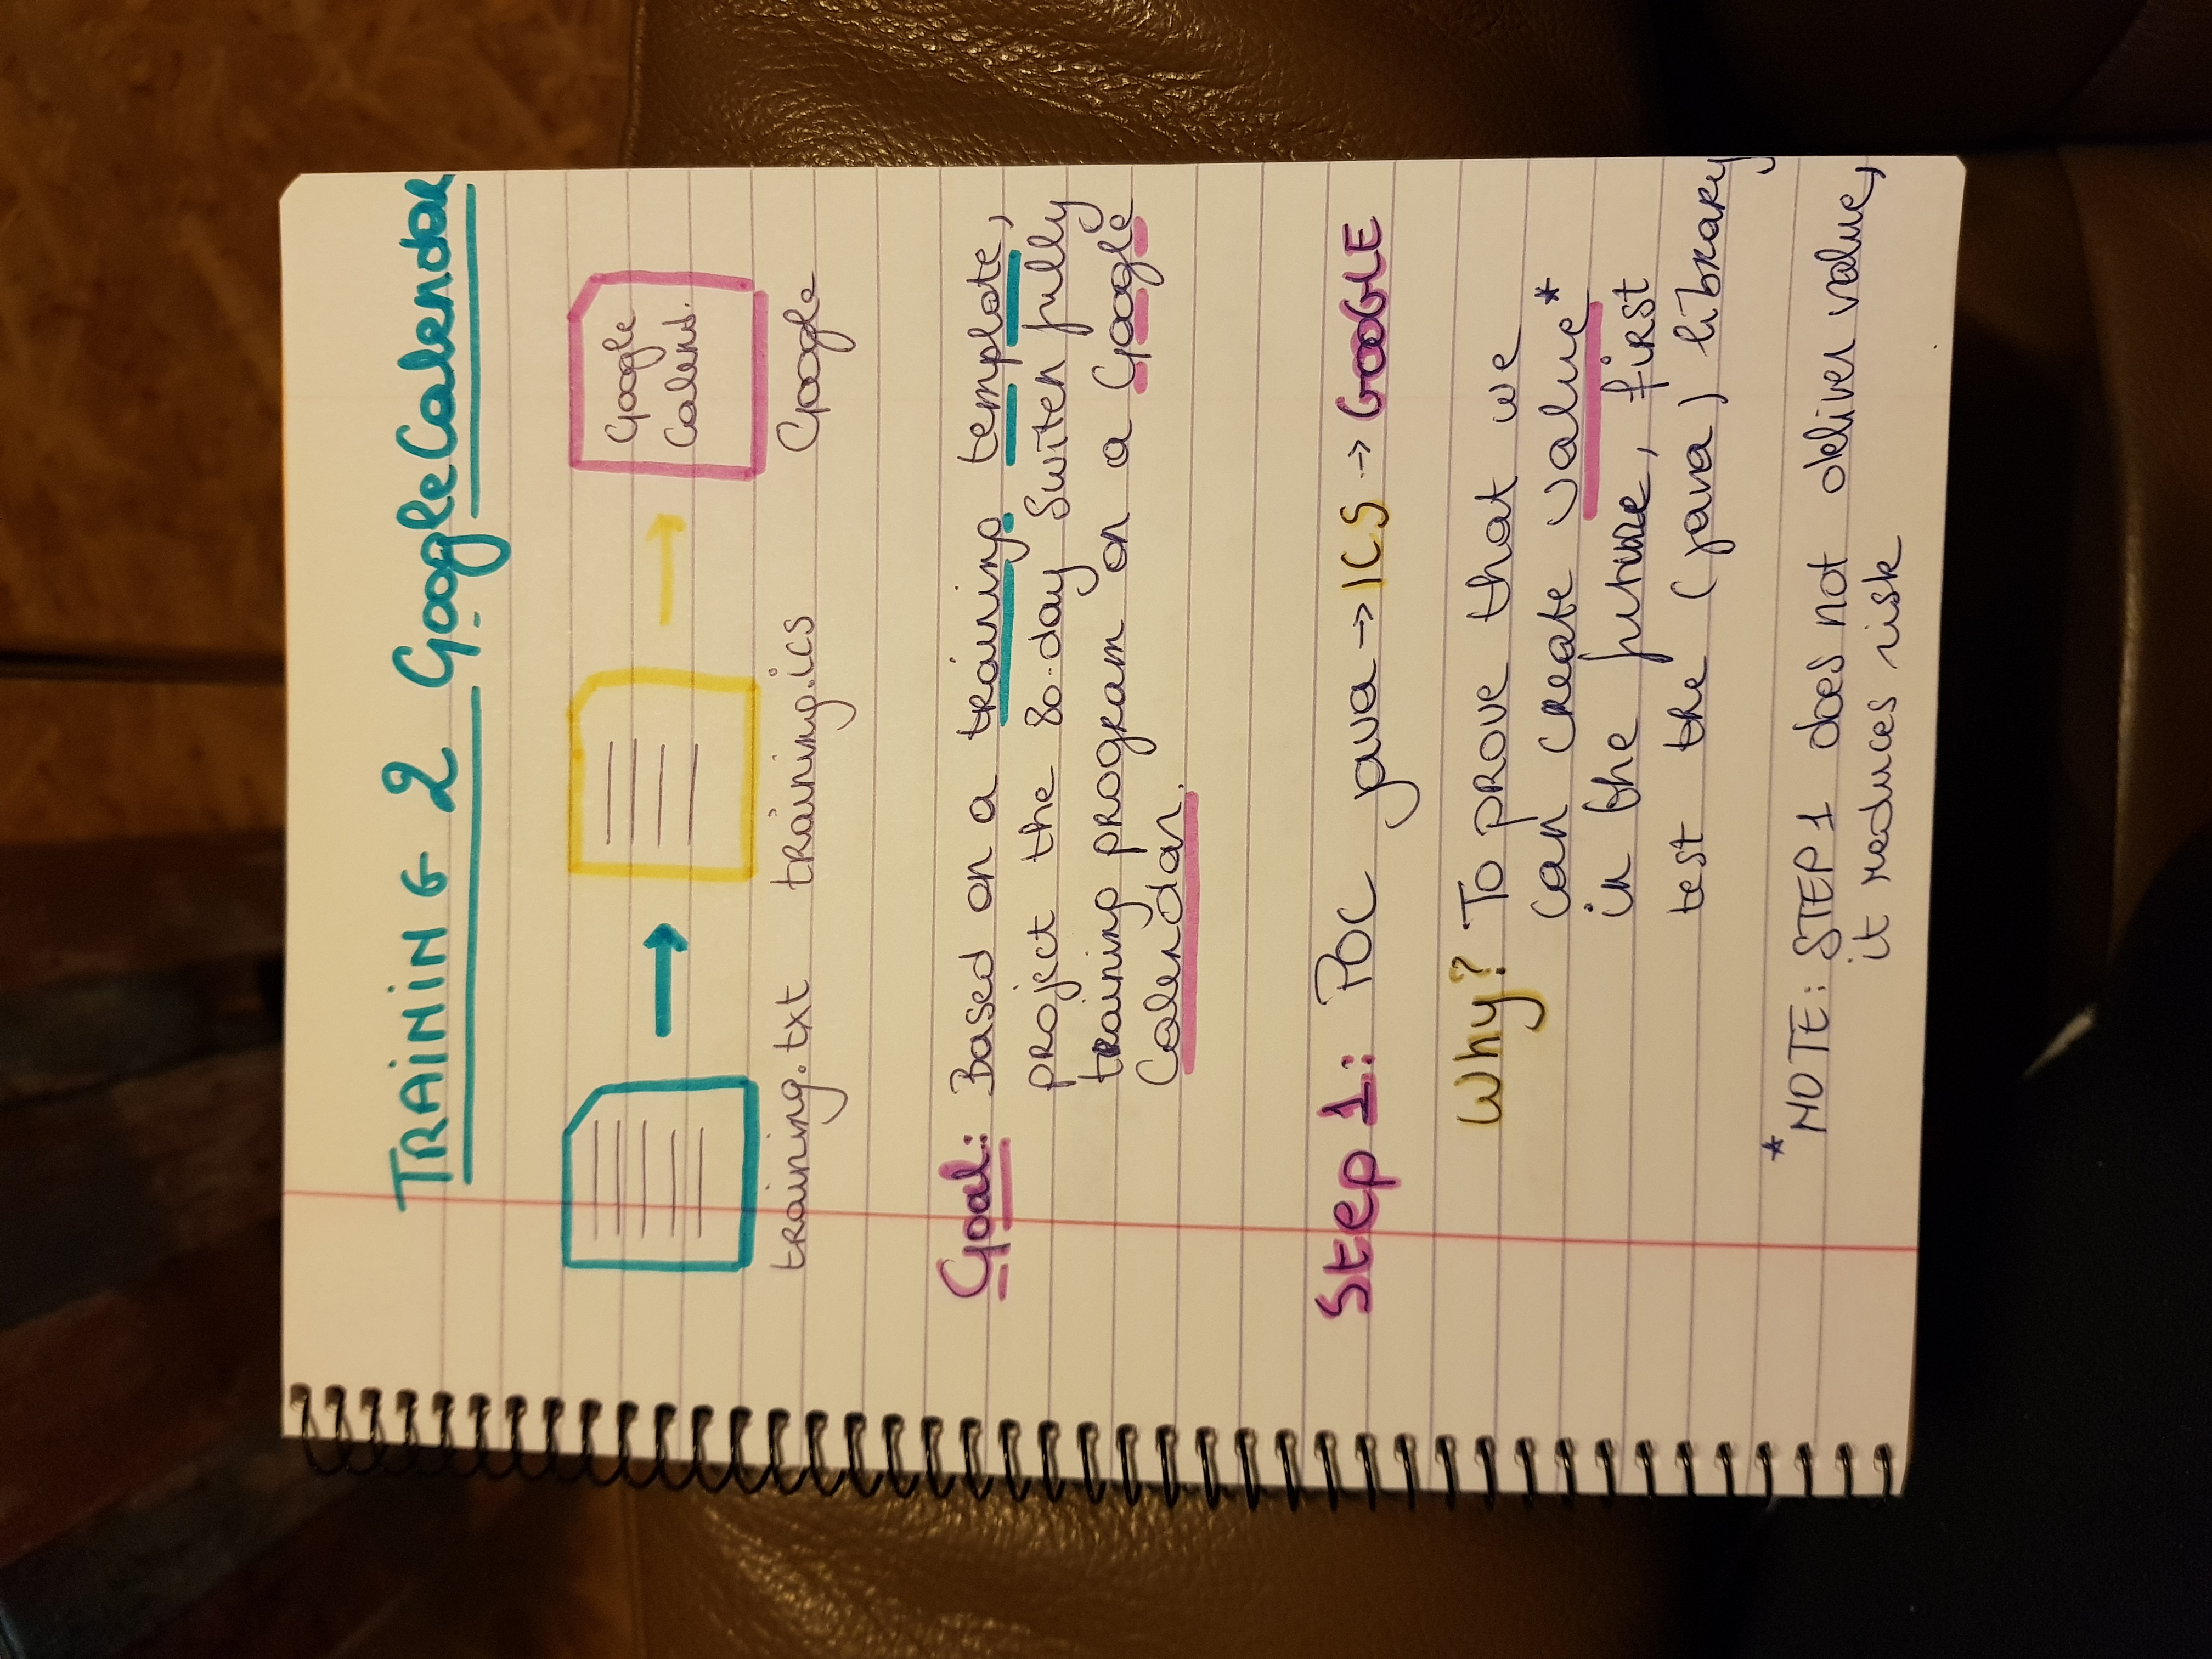 TRAINING 2 Google Calendar
Google
Calend.
training.txt training.ics Google
Goal: Based on a training template,
project the 80-day Switch fully
training program on a Google
Calendar.
Step 1: POC java → ICS → GOOGLE
Why? To prove that we
can create value*
in the future, first
test the (java) library
*NOTE: STEP 1 does not deliver value,
it reduces risk